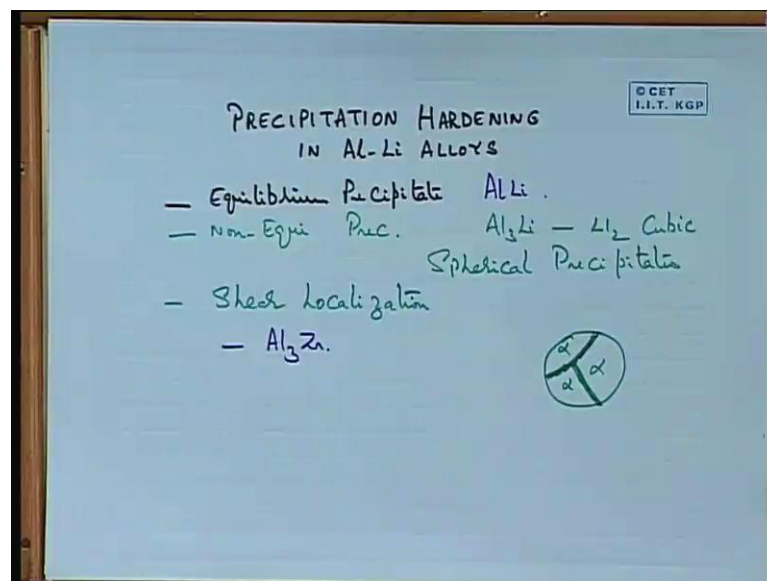 © CET
I.I.T. KGP
PRECIPITATION HARDENING
IN Al-Li ALLOYS
— Equilibrium Precipitate AlLi.
— Non-Equi Prec. Al3Li — LI2 Cubic
Spherical Precipitates
- Shear Localization
— Al3Zr.
α
α
α